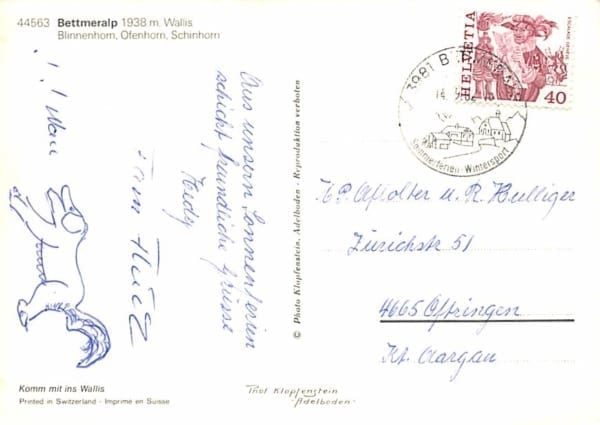 44563 Bettmeralp 1938 m, Wallis
Blinnenhorn, Ofenhorn, Schinhorn
Aus unsern Sonnenferien
schickt freundliche Grüsse
Hedy
Komm mit ins Wallis
Printed in Switzerland - Imprimé en Suisse
© Photo Klopfenstein, Adelboden - Reproduktion verboten
Phot Klopfenstein
Adelboden
HELVETIA
ESCALADE GENÈVE
40
3981 BETTMERALP
Sommerferien - Wintersport
Affolter u. R. Hulliger
Zürichstr 51
4665 Oftringen
Kt. Aargau